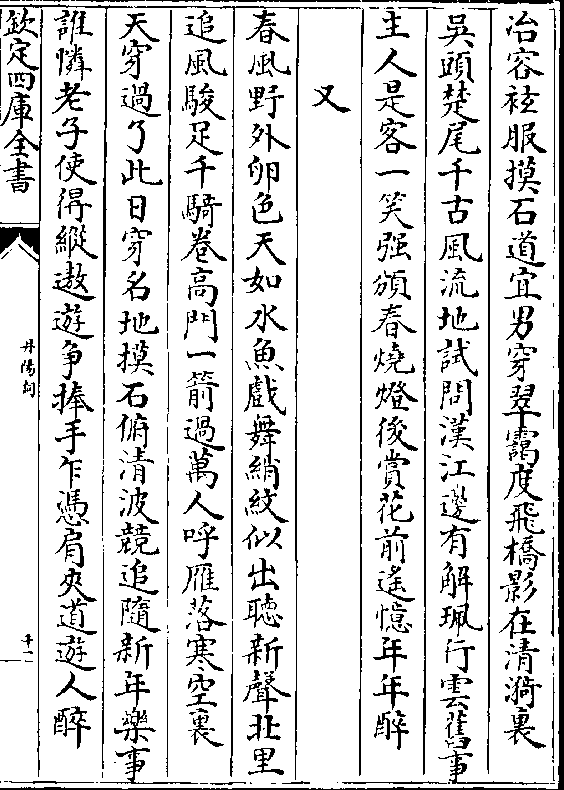 冶容袨服摸石道宜男穿翠靄度飛橋影在清漪裏
吳頭楚尾千古風流地試問漢江邊有解珮行雲舊事
主人是客一笑强頒春燒燈後賞花前遙憶年年醉
又
春風野外卵色天如水魚戲舞綃紋似出聽新聲北里
追風駿足千騎卷高門一箭過萬人呼雁落寒空裏
天穿過了此日穿名地摸石俯清波競追隨新年樂事
誰憐老子使得縱遨遊争捧手乍憑肩夾道遊人醉
欽定四庫全書
丹陽詞
十一